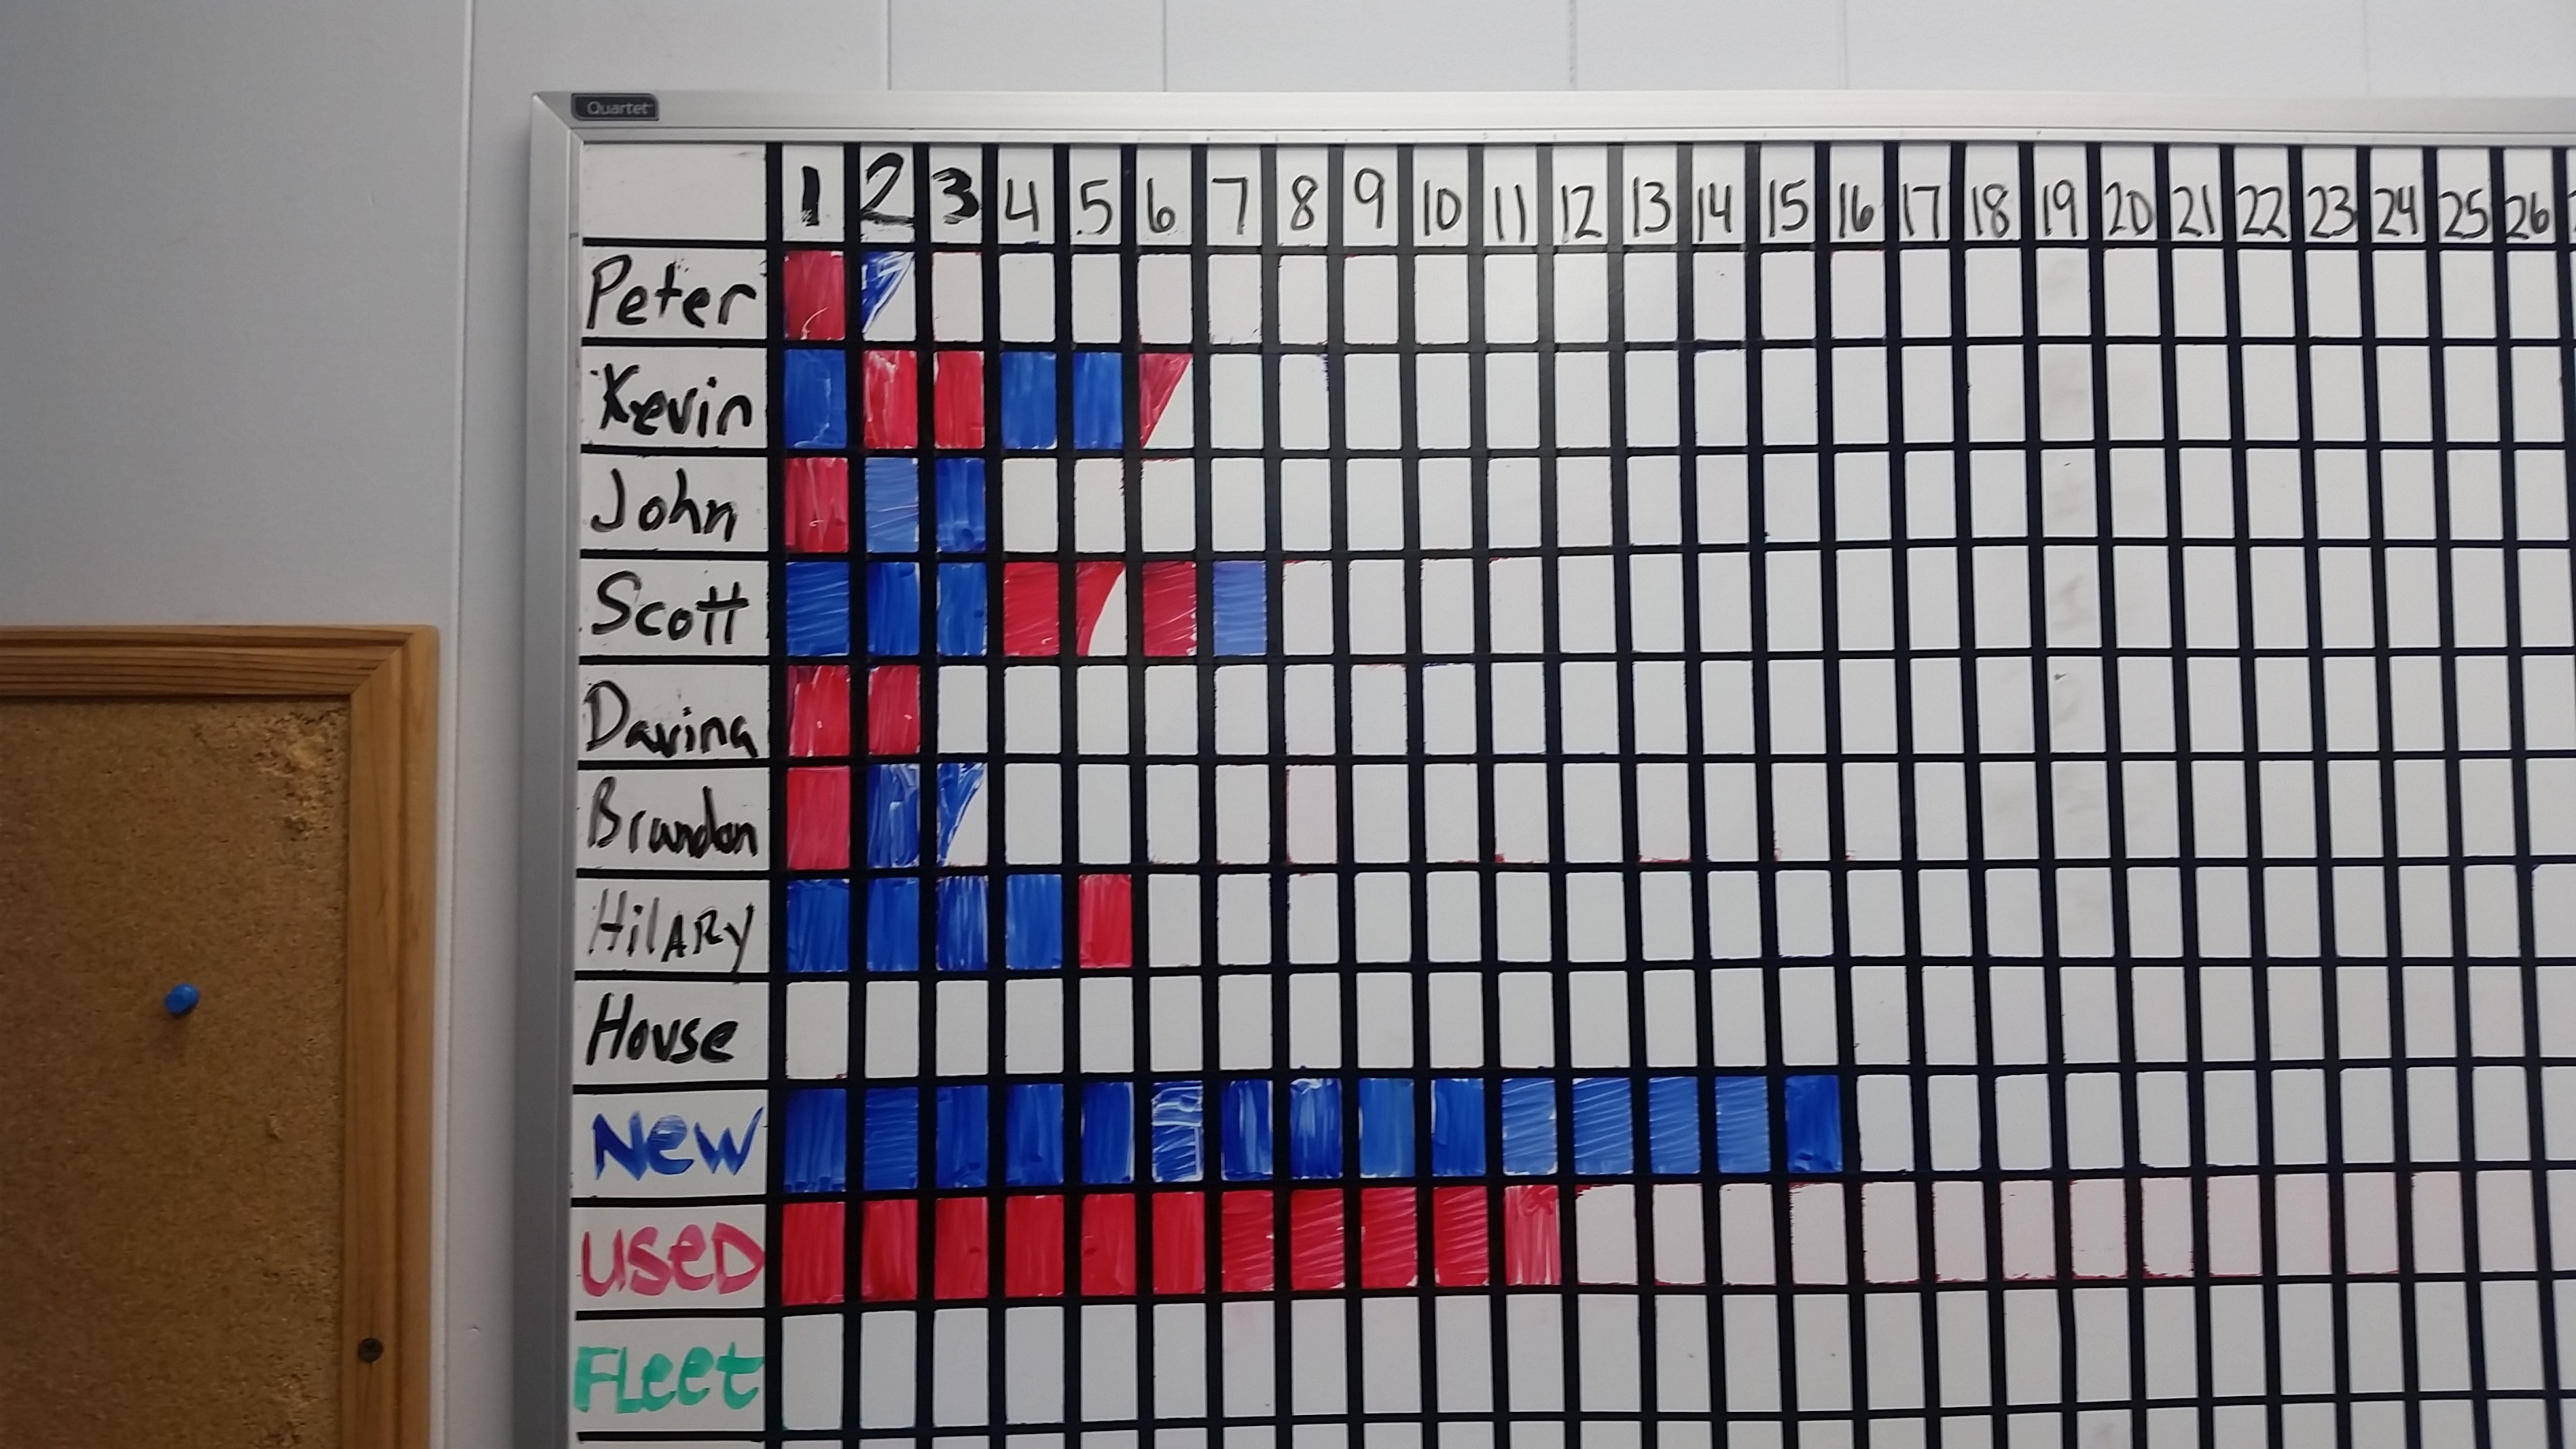 Quartet
1 2 3 4 5 6 7 8 9 10 11 12 13 14 15 16 17 18 19 20 21 22 23 24 25 26
Peter
Kevin
John
Scott
Davina
Brandon
HilARy
House
New
USED
FLeet